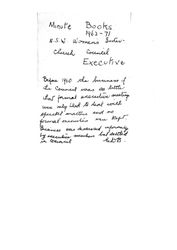 Minute Books
1962-73
N.S.W Womens Inter-
Church Council
Executive
Before 1968 the business of
the Council was so little
that formal executive meetings
were only held to deal with
special matters and no
formal minutes were kept
Business was discussed informally
by executive members but settled
in Council